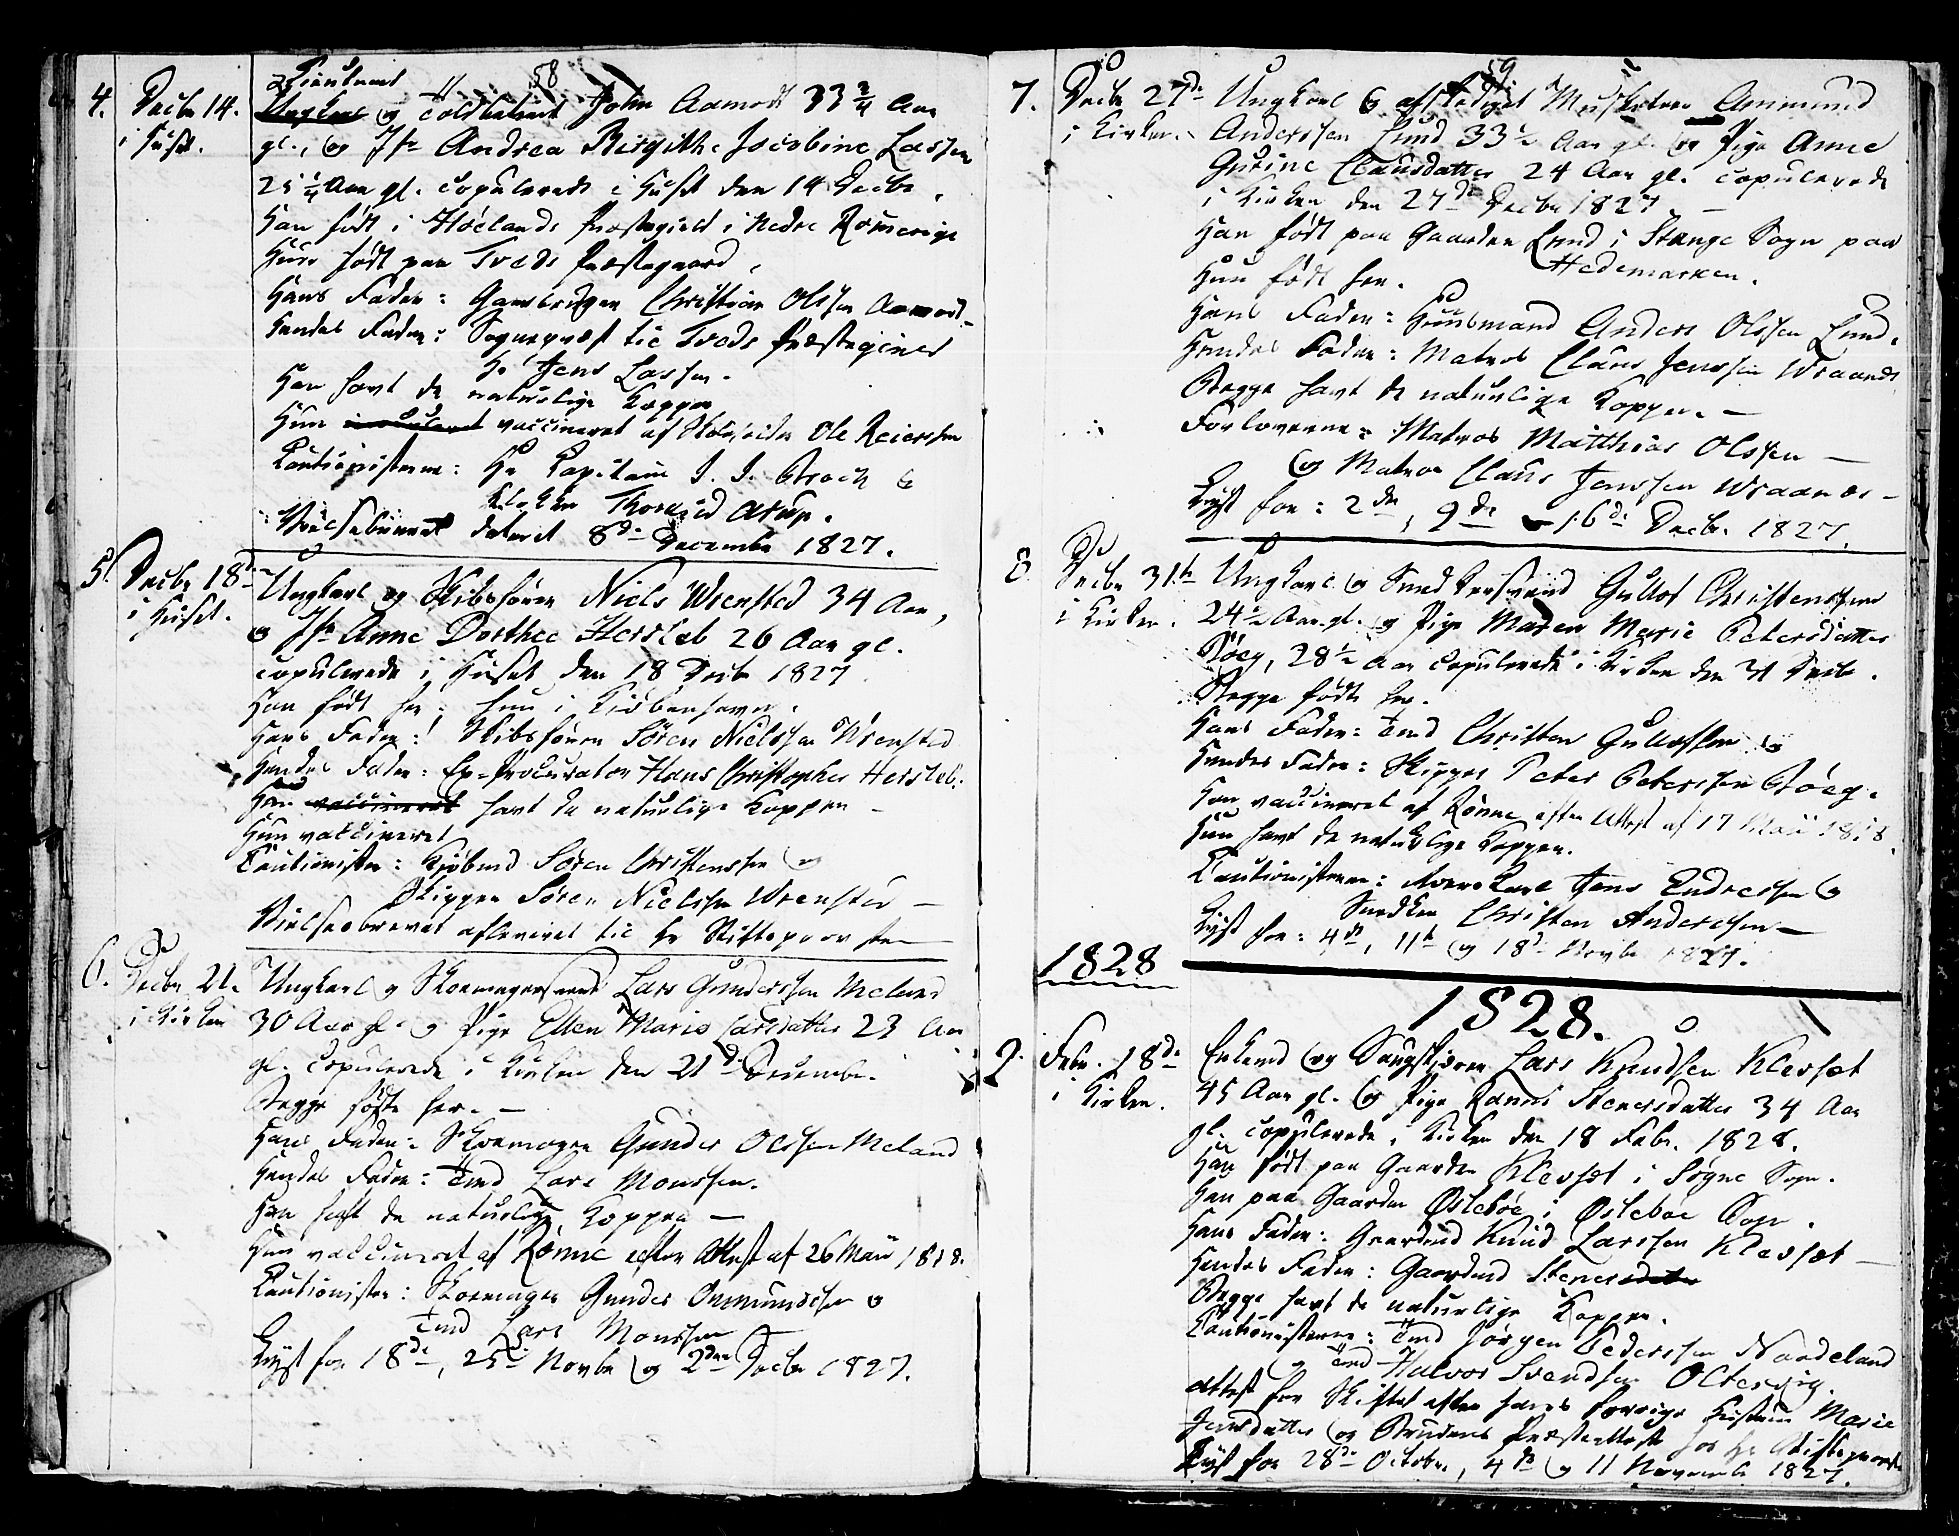 58
4. Decbr 14. Lieutenant
i Huset. Ungkarl og Toldbetient John Aamodt 33 3/4 Aar
gl., og Jfr Andrea Birgithe Jacobine Lassen
25 1/4 Aar gl. copulerede i Huset den 14 Decbr.
Han født i Hølands Præstegield i Nedre Romerige
Hun født paa Tveds Præstegaard,
Hans Fader: Christian Olssen Aamodt
Hendes Fader: Sognepræst til Tveds Præstegield
Hr Jens Lassen.
Han havt de naturlige Kopper
Hun vaccineret af Ole Reierssen
Cautionisterne: Hr Capitain I. I. Broch &
Klokker Arup.
Vielsebrevet dateret 8de December 1827.
5. Decbr 18de
i Huset. Ungkarl og Skibsfører Niels Wrensted 34 Aar,
og Jfr Anne Dorthee Hersleb 26 Aar gl.
copulerede i Huset den 18 Decbr 1827
Han født her; hun i Kiøbenhavn.
Hans Fader: Skibsfører Søren Nielssen Wrensted
Hendes Fader: Ex-Procurator Hans Christopher Hersleb.
Han vaccineret havt de naturlige Kopper –
Hun vaccineret
Cautionister: Kjøbmd Søren Christenssen og
Skipper Søren Nielssen Wrensted –
Vielsesbrevet afleveret til Hr Stiftsprovsten
6. Decbr 21.
i Kirken Ungkarl og Skomagersvend Lars Gunderssen Meland
30 Aar gl. og Pige Ellen Marie Larsdatter 23 Aar
gl. copulerede i Kirken den 21de Decembr.
Begge fødte her. –
Hans Fader: Skomager Gunder Olssen Meland
Hendes Fader: Tmd Lars Monssen.
Han havt de naturlige Kopper –
Hun vaccineret af Rønne efter Attest af 26 Maii 1818.
Cautionister: Skomager Gunder Ommundssen og
Tmd Lars Monssen
Lyst for 18de, 25de Novbr og 2den Decbr 1827.
59
7. Decbr 27de
i Kirken. Ungkarl & afskediget Musketeer Ommund
Anderssen Lund 33 1/2 Aar gl. og Pige Anne
Gurine Clausdatter 24 Aar gl. copulerede
i Kirken den 27de Decbr 1827 –
Han født paa Gaarden Lund i Stange Sogn paa
Hedemarken.
Hun født her.
Hans Fader: Huusmand Anders Olssen Lund.
Hendes Fader: Matros Claus Jenssen
Begge havt de naturlige Kopper. –
Forloverne: Matros Matthias Olssen –
og Matros Claus Jenssen
Lyst for: 2den, 9de 16de Decbr. 1827.
8. Decbr 31te
i Kirken. Ungkarl og Gullov Christenssen
24 1/2 Aar gl. og Pige Maren Marie Petersdatter
28 1/2 Aar copulerede i Kirken den 31 Decbr.
Begge fødte her.
Hans Fader: Tmd Christen Gullovssen
Hendes Fader: Skipper Peter Peterssen
Han vaccineret af Rønne efter Attest af 17 Maii 1818.
Hun havt de naturlige Kopper.
Cautionisterne: Jens Endressen og
Snedker Christen Anderssen –
Lyst for: 4de, 11te og 18de Novbr 1827.
1828
1828.
Febr. 18de
i Kirken. Enkemd og Lars Knudsen Klevset
45 Aar gl. og Pige Ranni Stenersdatter 34 Aar
gl. copulerede i Kirken den 18 Febr. 1828.
Han født paa Gaarden Klevset i Søgne Sogn.
Hun paa Gaarden Østebøe i Østeboe Sogn.
Hans Fader: Gaardmd Knud Larssen Klevset –
Hendes Fader: Gaardmd Stener
Begge havt de naturlige Kopper.
Cautionisterne: Tmd Jørgen Pederssen Nordeland
og Tmd Halvor Svendssen Oltervig.
Attest for Skiftet efter hans forrige Hustru Marie
Jensdatter og Brudens Præsteattest hos Hr Stiftsprovsten
Lyst for 28de October, 4de og 11 November 1827.